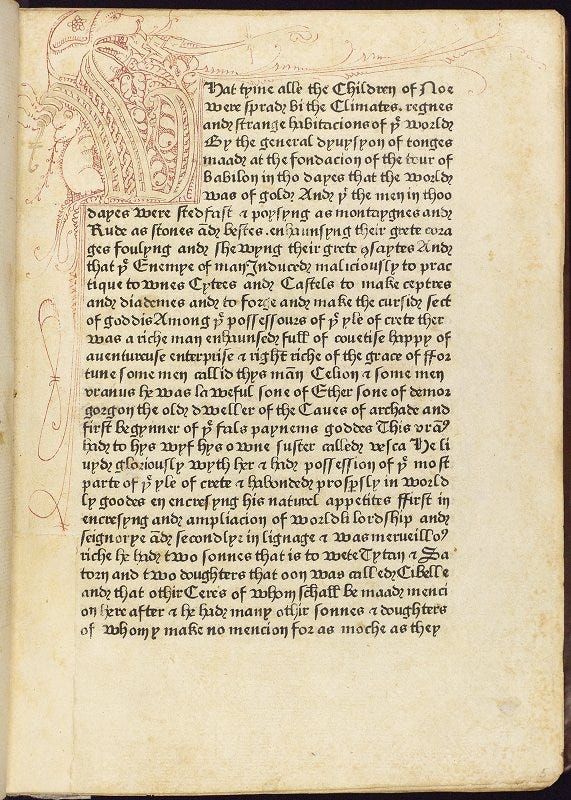 Hat tyme alle the Children of Noe
were sprady bi the Climates. regnes
and strange habitacions of yͤ world
By the general dyuysyon of tonges
maad at the fondacion of the tour of
Babilon in tho dayes that the world
was of gold And yͭ the men in thoo
dayes were stedfast & poysyng as montaygnes and
Rude as stones ād bestes. enhaunsyng their grete cora
ges foulyng and shewyng their grete ꝯsaytes And
that yͤ Enemye of man Induced maliciously to prac
tique townes Cytees and Castels to make ceptres
and diademes and to forge and make the cursid sect
of goddis Among yͤ possessours of yͤ yle of crete ther
was a riche man enhaunsed full of couetise happy of
auentureuse enterprise & right riche of the grace of ffor
tune some men callid thys man̄ Celion & some men
vranus he was laweful sone of Ether sone of demor
gorgon the old dweller of the Caues of archade and
first begynner of yͤ fals paynems goddes This vranꝯ
had to hys wyf hys owne suster called vesca He li
uyd gloriously wyth her & had possession of yͤ most
parte of yͤ yle of crete & habonded prospsly in world
ly goodes en encresyng his naturel appetites ffirst in
encresyng and ampliacion of worldli lordship and
seignorye ād secondlye in lignage & was merueilloꝯ
riche he had two sonnes that is to wete Tytan & Sa
torn and two doughters that oon was called Cibelle
and that othir Ceres of whom schall be maad menci
on here after & he had many othir sonnes & doughters
of whom y make no mencion for as moche as they